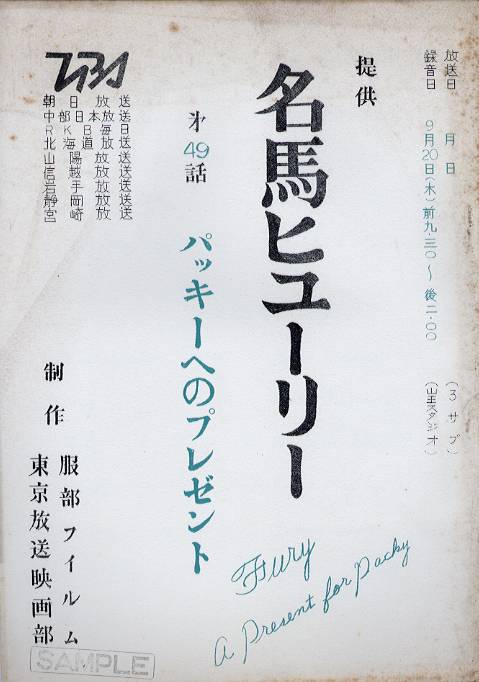 放送日　月　日　（３サブ）
録音日　9月20日（木）前九・三〇～後二・00　（山王スタジオ）
提供
名馬ヒユーリー
才49話
パッキーへのプレゼント
TBS
朝日放送
中部日本放送
RKB毎日
北海道放送
山陽放送
信越放送
岩手放送
静岡放送
宮崎放送
制作　服部フイルム
東京放送映画部
Fury
A Present for Packy
SAMPLE